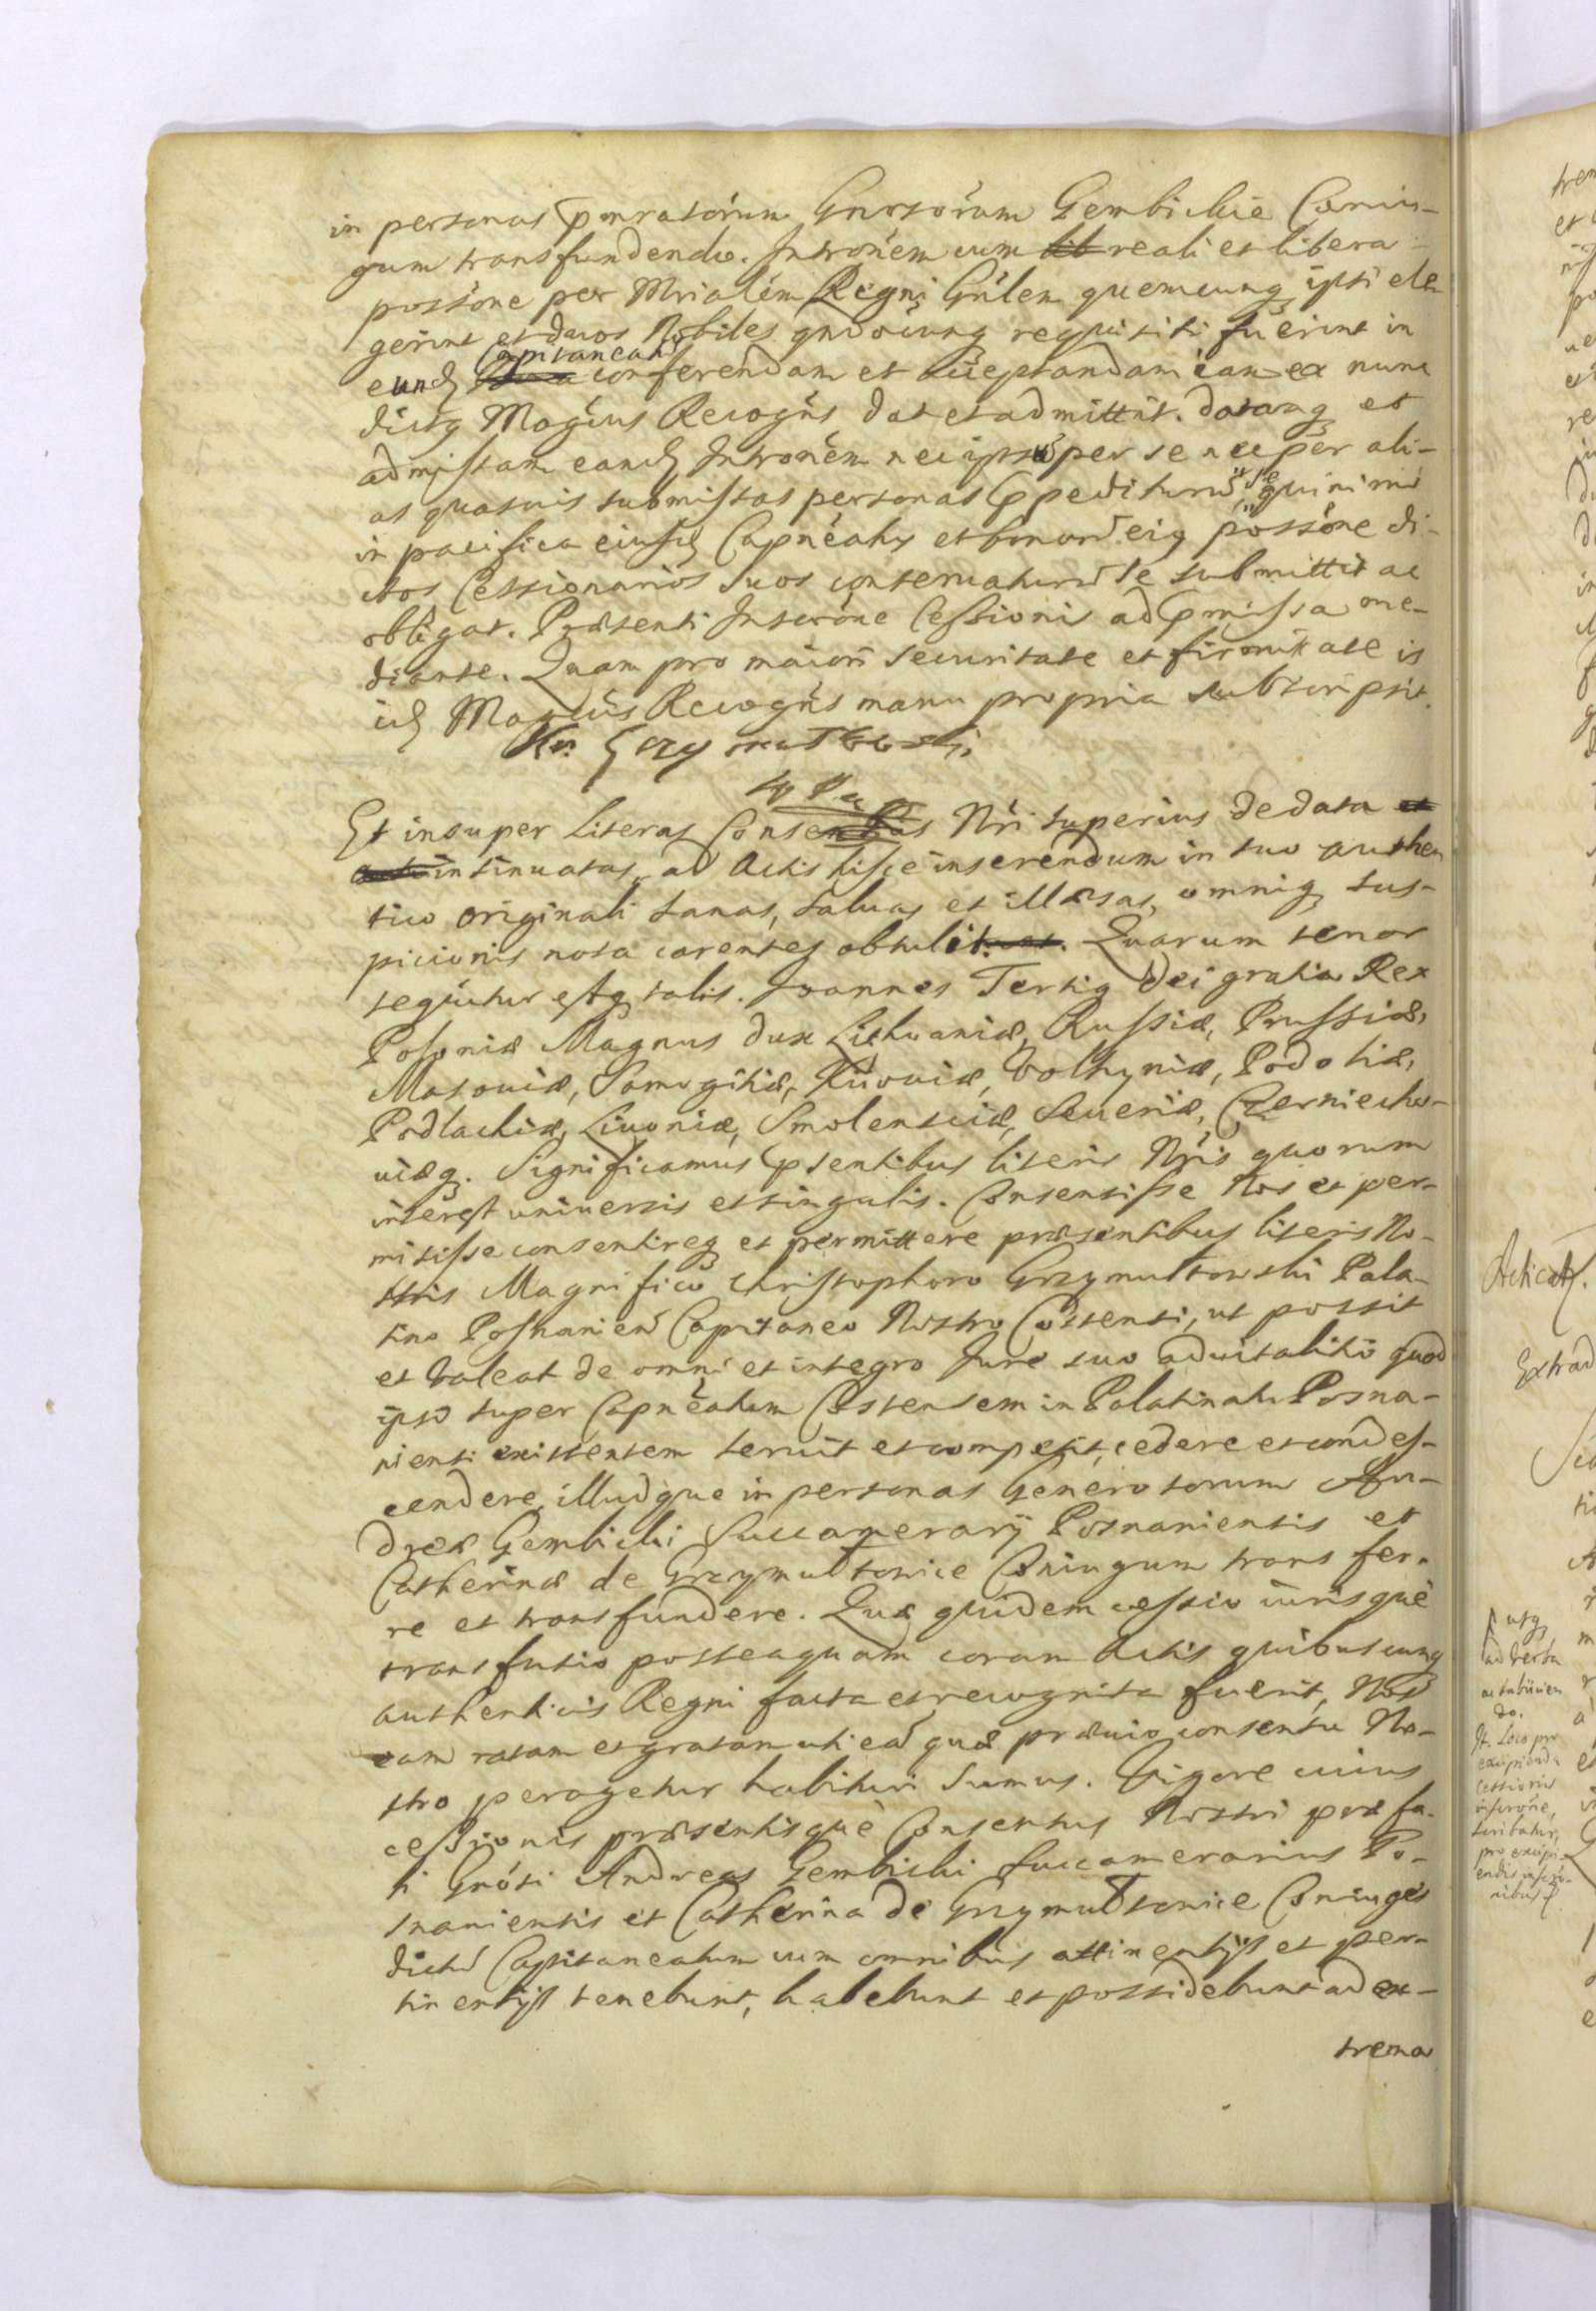 in personas pmratorum Gnrsorum Gembickie Coniu-
gum transfundendo. Intronem cum lib reali et libera
possone per Mrialem Regni Gnlem quemcunq ipsi ele
gerint et duos Nobiles qndocunq requisiti fuerint in
eund Capitaneatu conferendam et acceptandam iam ex nunc
dictq Magcus Recogns dat et admittit. datamq et
admissam eand Intronem nec ipse per se nec per ali-
as quasuis submissas personas Ppediturum se quinimo
in pacifica eiusd Capneatq et bonor eiq possone di-
ctos Cessionarios suos conseruaturu se submittit ac
obligat. Præsenti Inscrone Cessionis ad pmissa me-
diante. Quam pro maiori securitate et firmitate is
id Magcus Recogns manu propria subscripsit.
Kr. Grzymultowski
W P
Et insuper literas Consensus Nri superius de data et
insinuatas, ad Actis hisce inserendum in suo authen
tico originali sanas, saluas et illæsas, omniq sus-
picionis nota carentes obtulit. Quarum tenor
sequitur estq talis. Joannes Tertiq Dei gratia Rex
Poloniæ Magnus dux Lithuaniæ, Russiæ, Prussiæ,
Masouiæ, Samogitiæ, Kiiouiæ, Volhyniæ, Podoliæ,
Podlachiæ, Liuoniæ, Smolensciæ, Seueriæ, Czerniecho-
uiæq. Significamus psentibus literis Nris quorum
interest uniuersis et singulis. Consensisse Nos et per-
misisse consentireq et permittere præsentibus literis No-
stris Magnifico Christophoro Grzymultowski Pala-
tino Posnanien Capitaneo Nostro Costensi, ut possit
et valeat de omni et integro Jure suo aduitalitio quod
ipso super Capneatum Costensem in Palatinatu Posna-
niensi existentem seruit et competit, cedere et condes-
cendere, illudque in personas Generosorum An-
dreæ Gembicki Succamerarij Posnaniensis et
Catherinæ de Grzymultowice Coniugum trans fer-
re et transfundere. Quæ quidem cessio iurisque
transfusio posteaquam coram Actis quibuscunq
authenticis Regni facta et recognita fuerit, Nos
eam ratam et gratam uti ea quæ præuio consensu No-
stro peragetur habituri sumus. Vigore cuius
cessionis præsentisque Consensus Nostri præfa-
ti Gnosi Andreas Gembicki Succamerarius Po-
snaniensis et Catherina de Grzymultowice Coniuges
dictu Capitaneatum cum omnibus attinentijs et per-
tinentijs tenebunt, habebunt et possidebunt ad ex-
trema
Acticat.
Extrad
utq
ad verba
do.
It. Loco pro
excipienda
Cessionis
inscrone,
scribatur,
pro excipi-
endis inscro-
nibus